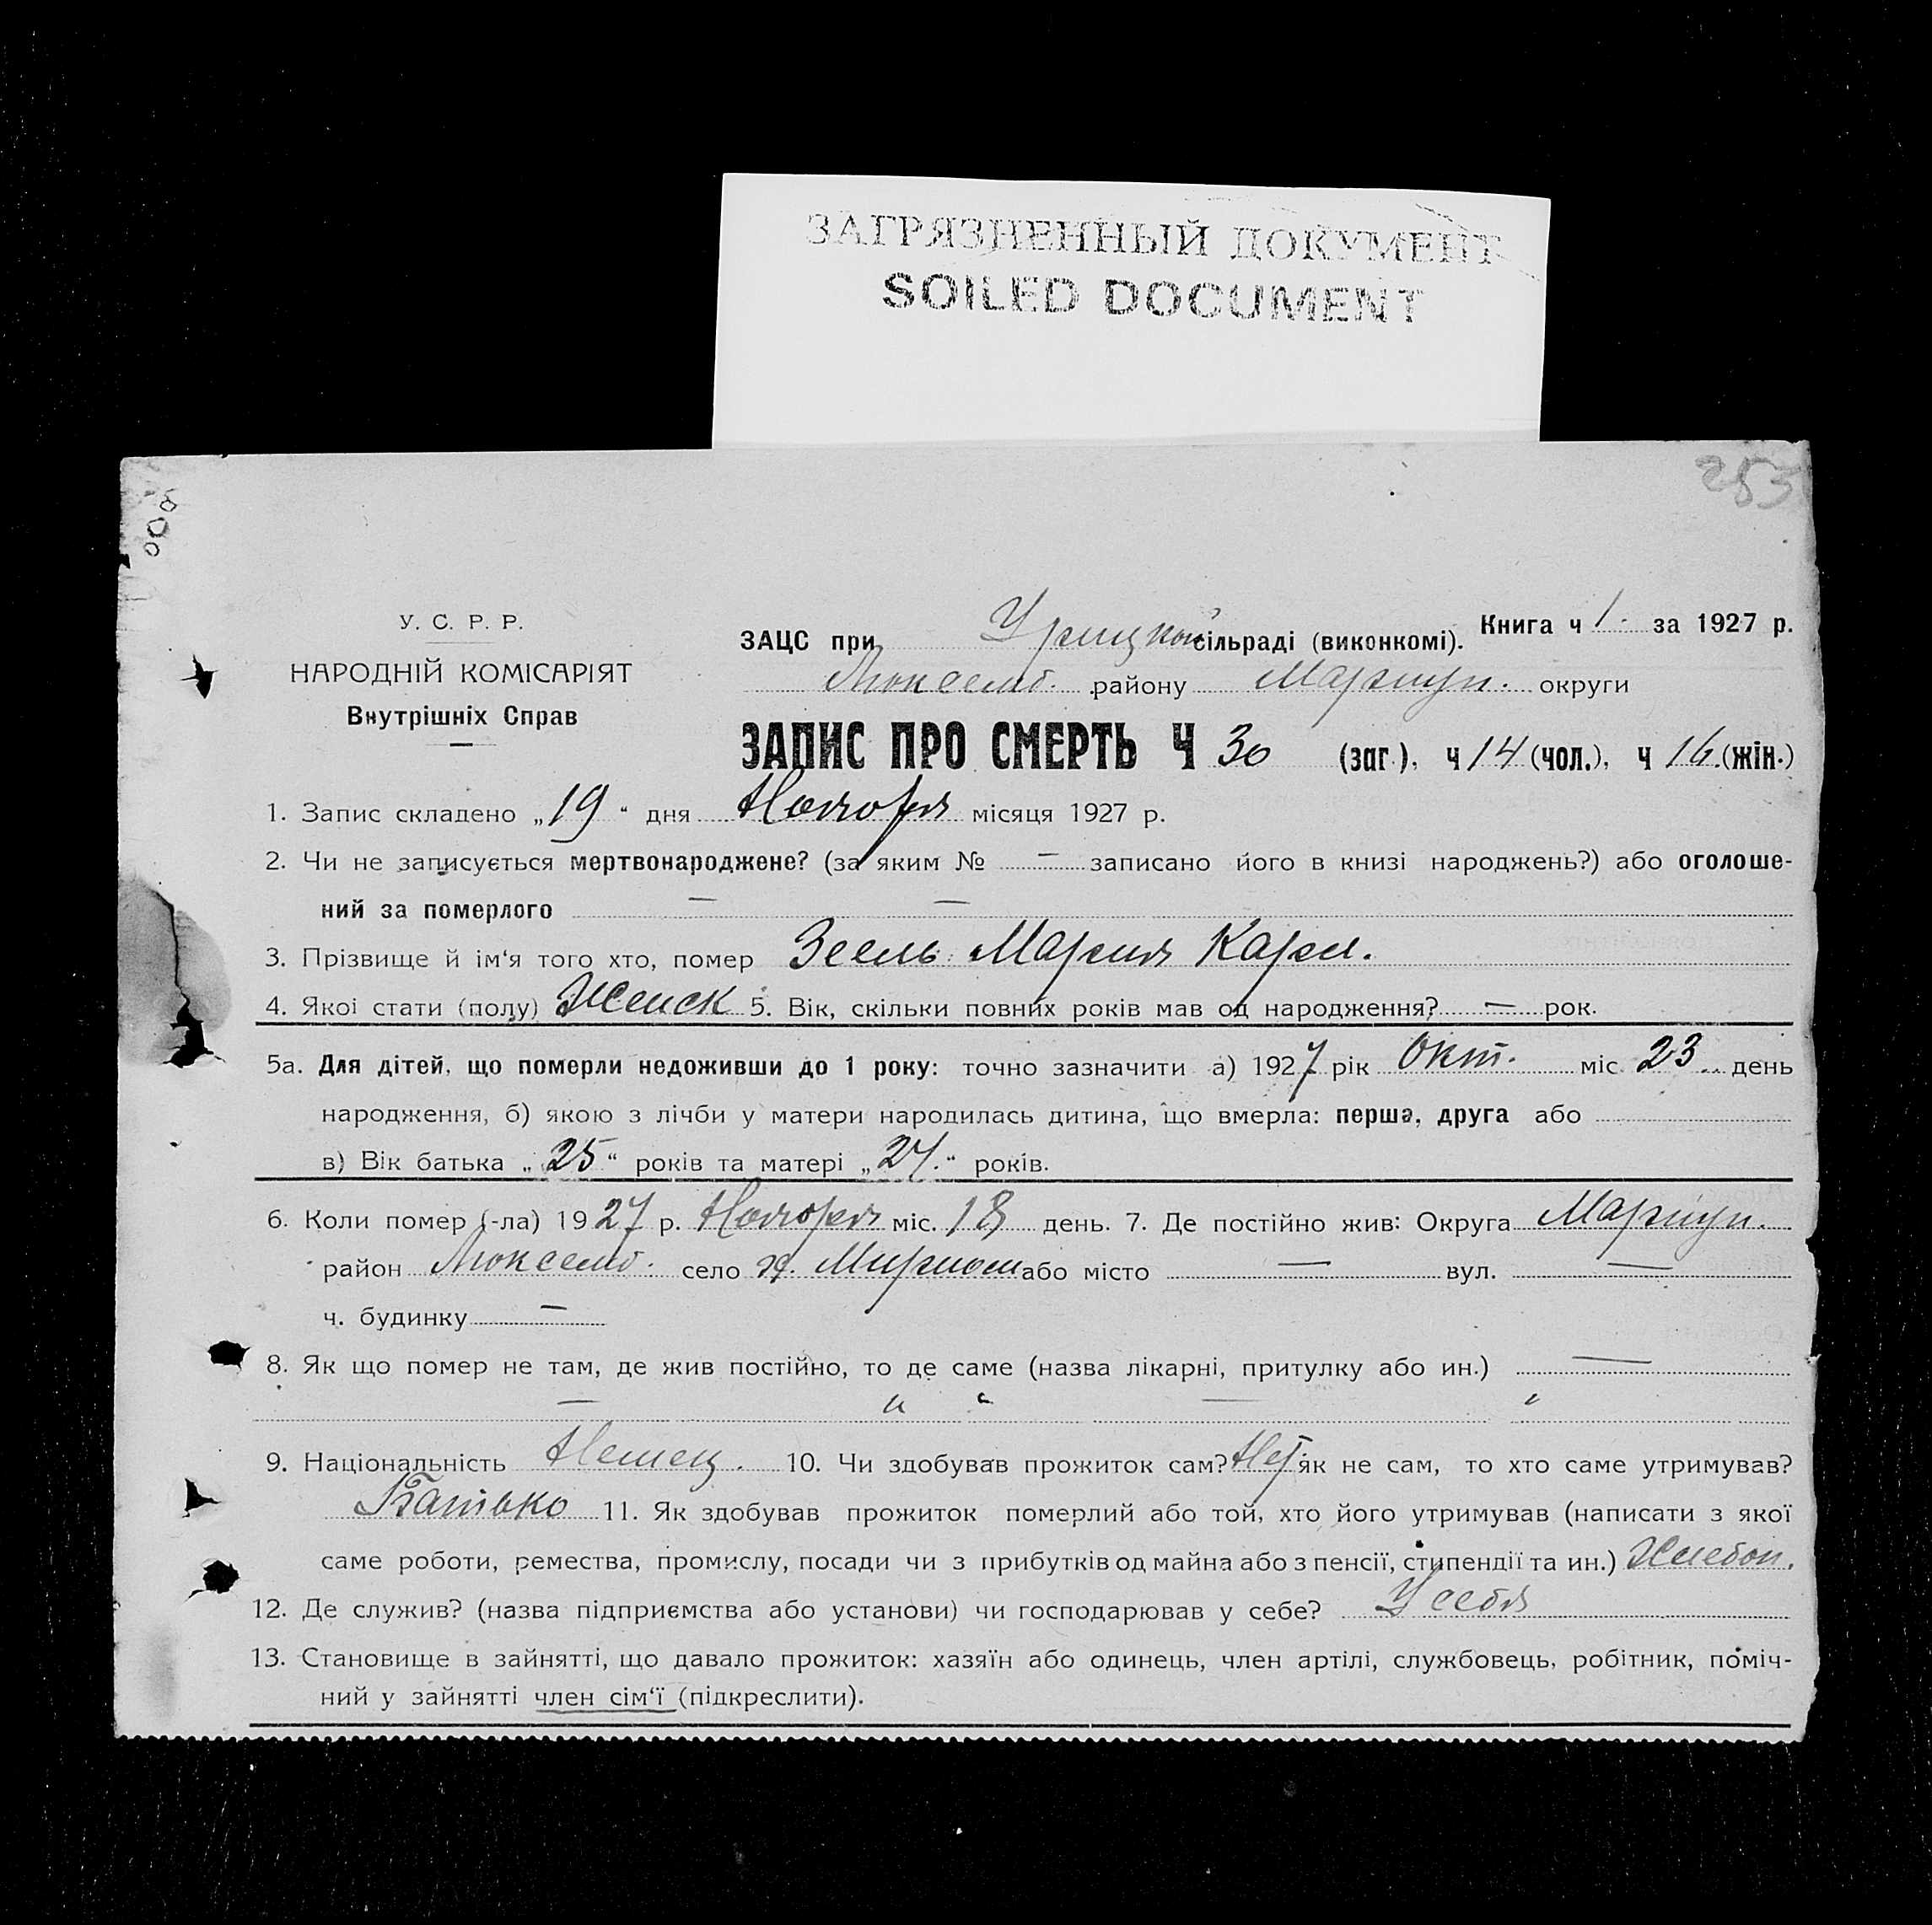 ЗАГРЯЗНЕННЫЙ ДОКУМЕНТ
SOILED DOCUMENT
253
У. С. Р. Р.
НАРОДНІЙ КОМІСАРІЯТ
Внутрішніх Справ
ЗАЦС при Урицкой сільраді (виконкомі). Книга ч 1. за 1927 р.
Люксемб. району Мариуп. округи
ЗАПИС ПРО СМЕРТЬ Ч 30 (заг.), ч 14 (чол.), ч 16 (жін.)
1. Запис складено „19" дня Ноября місяця 1927 р.
2. Чи не записується мертвонароджене? (за яким № — записано його в книзі народжень?) або оголоше-
ний за померлого — —
3. Прізвище й ім'я того хто, помер Зеель Мария Карл.
4. Якої стати (полу) Женск 5. Вік, скільки повних років мав од народження? — рок.
5а. Для дітей, що померли недоживши до 1 року: точно зазначити а) 1927 рік Окт. міс 23 день
народження, б) якою з лічби у матери народилась дитина, що вмерла: перша, друга або
в) Вік батька „25" років та матері „24." років.
6. Коли помер (-ла) 1927 р. Ноября міс. 18 день. 7. Де постійно жив: Округа Мариуп.
район Люксемб. село х. або місто — вул. —
ч. будинку —
8. Як що помер не там, де жив постійно, то де саме (назва лікарні, притулку або ин.) —
— " " — "
9. Національність Немец. 10. Чи здобував прожиток сам? Нет як не сам, то хто саме утримував?
Батько 11. Як здобував прожиток померлий або той, хто його утримував (написати з якої
саме роботи, ремества, промислу, посади чи з прибутків од майна або з пенсії, стипендії та ин.) Хлебоп.
12. Де служив? (назва підприємства або установи) чи господарював у себе? У себя
13. Становище в зайнятті, що давало прожиток: хазяїн або одинець, член артілі, службовець, робітник, поміч-
ний у зайнятті член сім'ї (підкреслити).